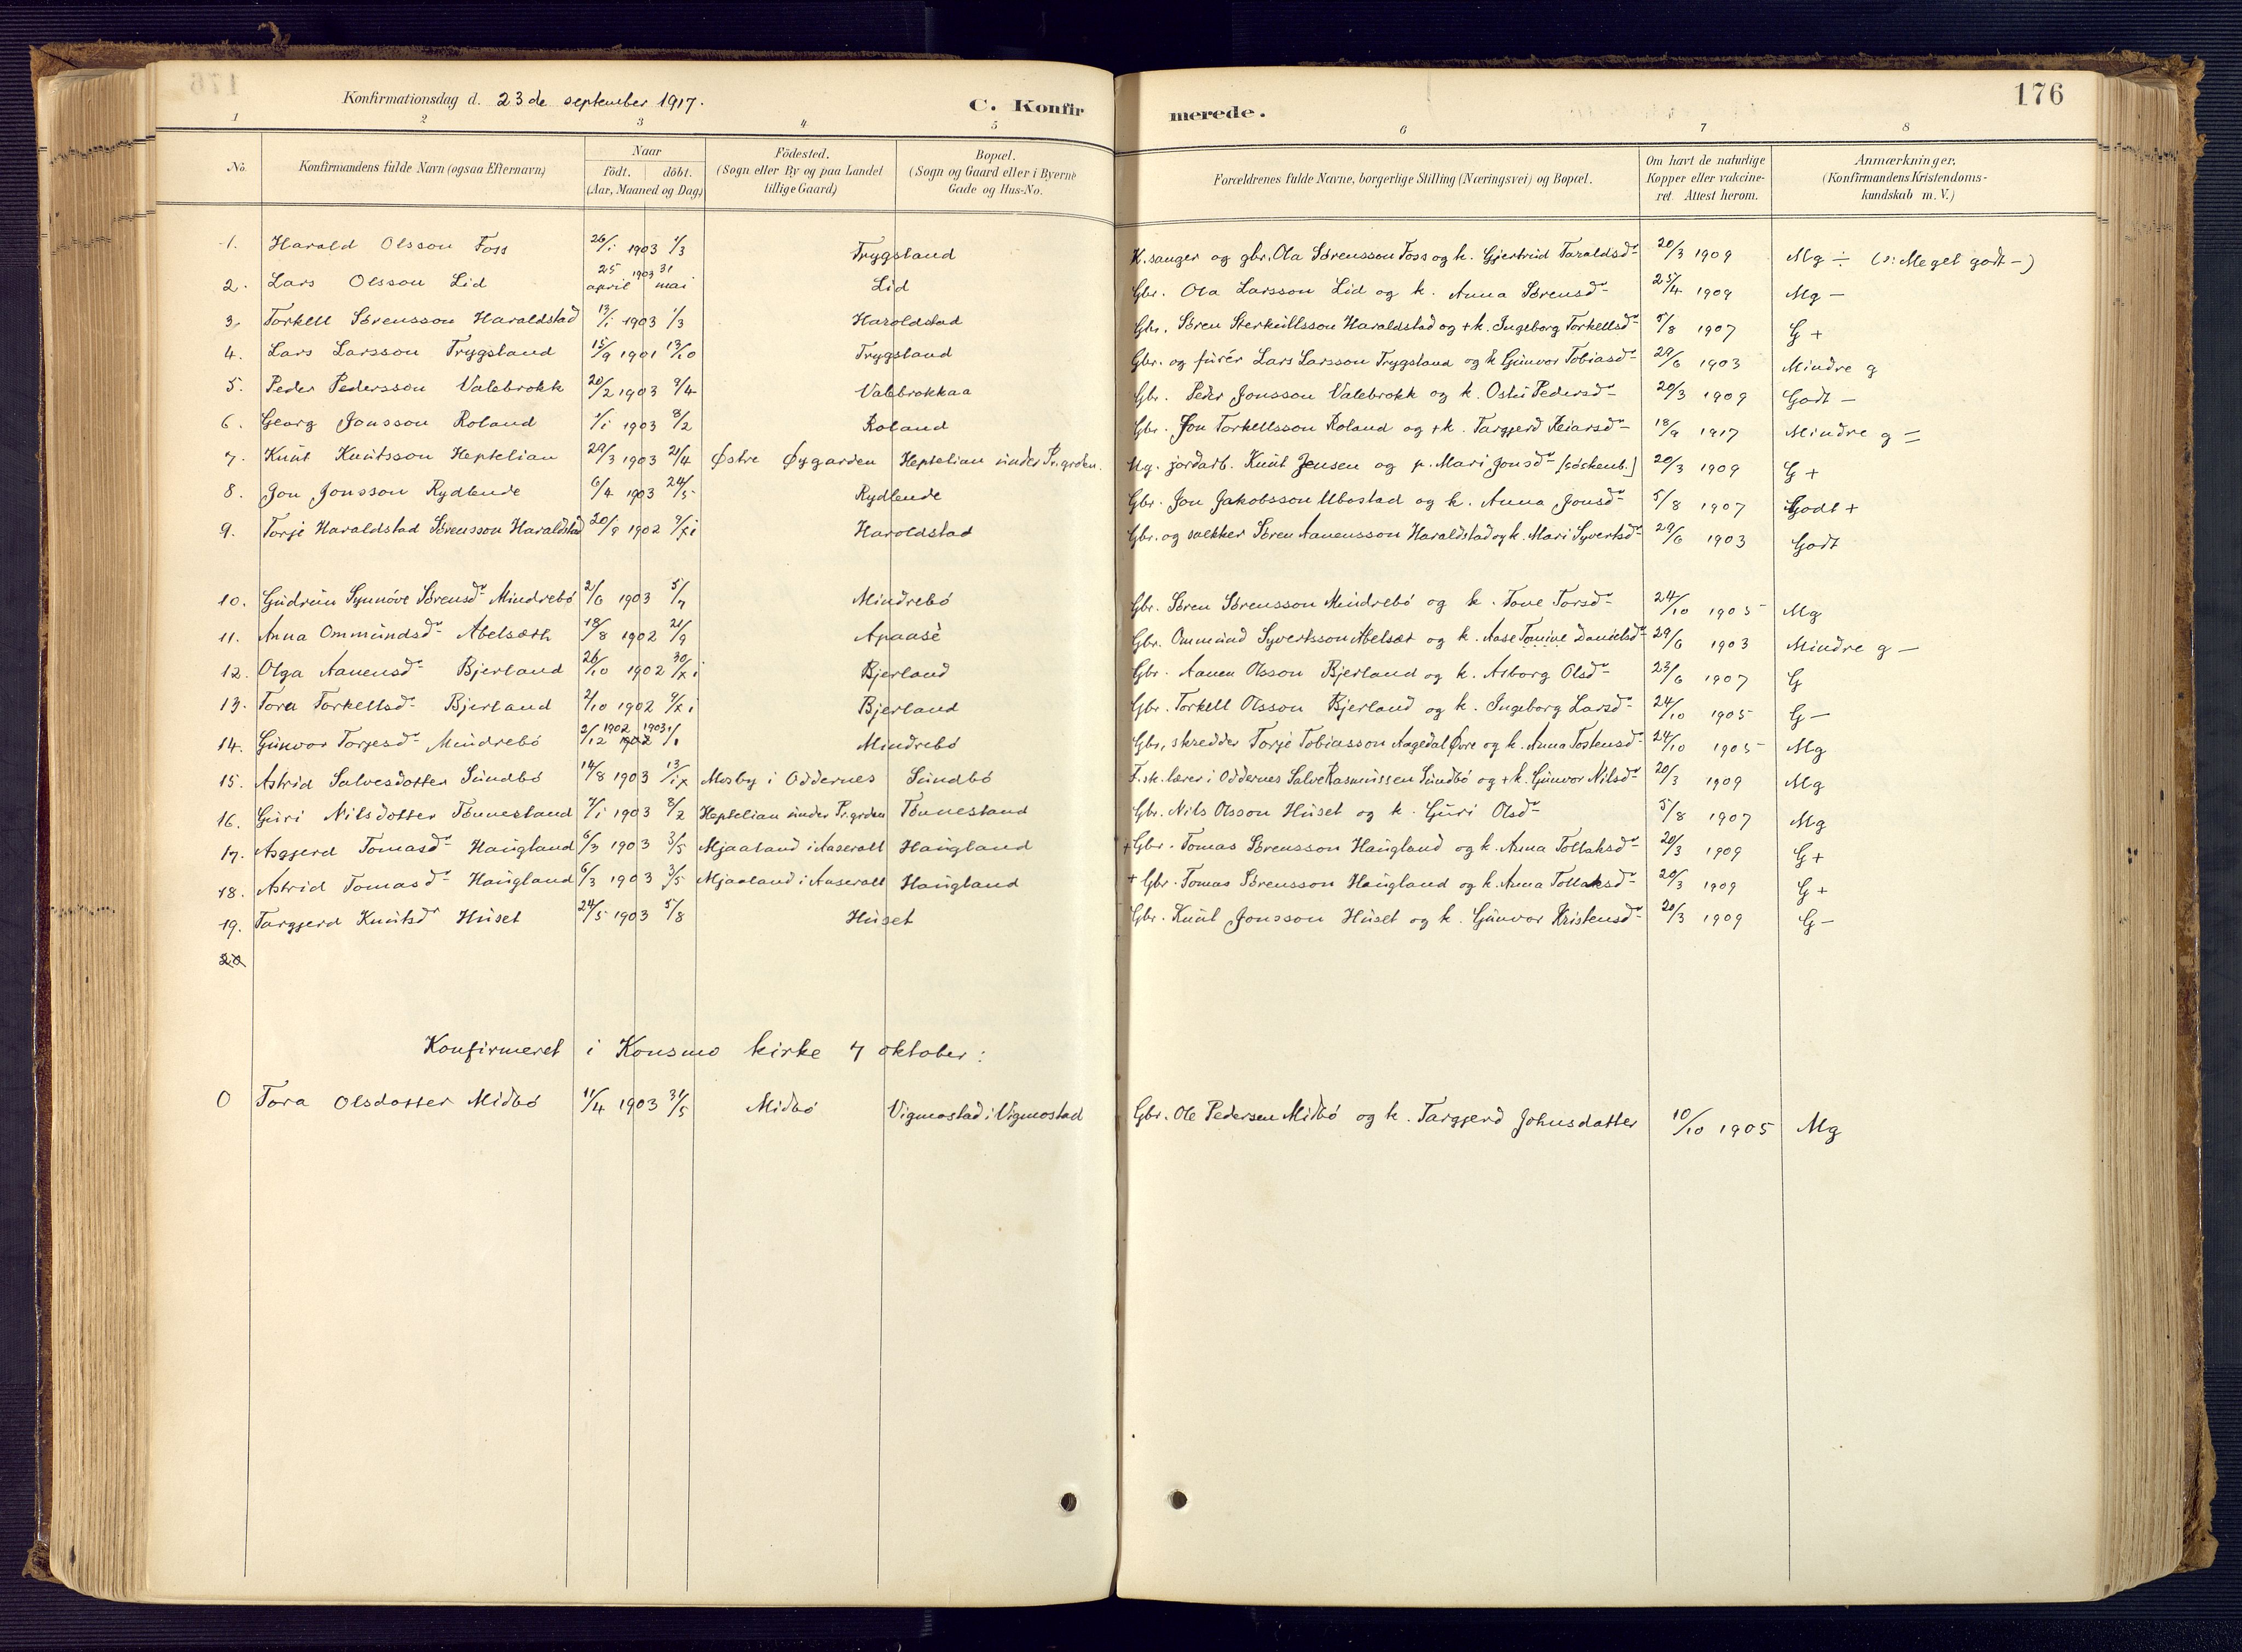 176
Konfirmationsdag d. 23de september 1917.
C. Konfirmerede.
1 2 3 4 5 6 7 8
No. Konfirmandens fulde Navn (ogsaa Efternavn) Naar födt. döbt. (Aar, Maaned og Dag) Födested. (Sogn eller By og paa Landet tillige Gaard) Bopæl. (Sogn og Gaard eller i Byerne Gade og Hus-No. Forældrenes fulde Navne, borgerlige Stilling (Næringsvei) og Bopæl. Om havt de naturlige Kopper eller vakcineret. Attest herom. Anmærkninger. (Konfirmandens Kristendomskundskab m. V.)
1. Harald Olsson Foss 26/1 1903 1/3 Trygsland K. sanger og gbr. Ola Sörensson Foss og k. Gjertrud Taraldsdr 20/3 1909 Mg ÷ (ɔ: Meget godt -)
2. Lars Olsson Lid 25 april 1903 31 mai Lid Gbr. Ola Larsson Lid og k. Anna Sörensdr 25/4 1909 Mg -
3. Torkell Sörensson Haraldstad 13/1 1903 1/3 Haroldstad Gbr. Sören Sterkullsson Haraldstad og + k. Ingeborg Torkellsdr 5/8 1907 G +
4. Lars Larsson Trygsland 15/9 1901 13/10 Trygsland Gbr. og furér Lars Larsson Trygsland og k Gunvor Tobiasdr 29/6 1903 Mindre g
5. Peder Pedersson Valebrokk 20/2 1903 9/4 Valebrokkaa Gbr. Peder Jonsson Valebrokk og k. Osti Pedersdr 20/3 1909 Godt -
6. Georg Jonsson Roland 1/1 1903 8/2 Roland Gbr. Jon Torkellsson Roland og + k. Targjerd Reiarsdr 18/9 1917 Mindre g =
7. Knut Knutsson Heptelian 29/3 1903 21/4 Østre Øygarden Heptelian under Pr.grden. Ug. jordarb. Knut Jensen og p. Mari Jonsdr [söskenb.] 20/3 1909 G +
8. Jon Jonsson Rydlende 6/4 1903 24/5 Rydlende Gbr. Jon Jakobsson Ubostad og k. Anna Jonsdr 5/8 1907 Godt +
9. Torje Haraldstad Sörensson Haraldstad 20/9 1902 9/xi Haroldstad Gbr. og snekker Sören Aanensson Haraldstad og k. Mari Syvertsdr 29/6 1903 Godt
10. Gudrun Synnöve Sörensdr Mindrebö 2/6 1903 5/7 Mindrebö Gbr. Sören Sörensson Mindrebö og k. Tone Torsdr 24/10 1905 Mg
11. Anna Ommundsdr Abelsæth 18/8 1902 21/9 Apaasé Gbr. Ommund Syvertsson Abelsæt og k. Aase Tomine Danielsdr 29/6 1903 Mindre g -
12. Olga Aanensdr Bjerland 26/10 1902 30/xi Bjerland Gbr. Aanen Olsson Bjerland og k. Asborg Olsdr 23/6 1907 G
13. Tora Torkellsdr Bjerland 2/10 1902 9/xi Bjerland Gbr. Torkell Olsson Bjerland og k. Ingeborg Larsdr 24/10 1905 G -
14. Gunvor Torjesdr Mindrebö 2/12 1902 1903 1/1 Mindrebö Gbr., skredder Torje Tobiasson Aagedal Øvre og k. Anna Tostensdr 24/10 1905 Mg
15. Astrid Salvesdotter Sundbö 14/8 1903 13/ix Mosby i Oddernes Sundbö F. sk. lærer i Oddernes Salve Rasmussen Sundbö og + k. Gunvor Nilsdr 20/3 1909 Mg
16. Guri Nilsdotter Tönnesland 7/1 1903 8/2 Heptelian under Pr.grden Tönnesland Gbr. Nils Olsson Huset og k. Guri Olsdr 5/8 1907 Mg
17. Asgjerd Tomasdr Haugland 6/3 1903 3/5 Mjaaland i Aaserall Haugland + Gbr. Tomas Sörensson Haugland og k. Anna Tollaksdr 20/3 1909 G +
18. Astrid Tomasdr Haugland 6/3 1903 3/5 Mjaaland i Aaserall Haugland + Gbr. Tomas Sörensson Haugland og k. Anna Tollaksdr 20/3 1909 G +
19. Targjerd Knutsdr Huset 24/5 1903 5/8 Huset Gbr. Knut Jonsson Huset og k. Gunvor Kristensdr 20/3 1909 G -
20
Konfirmeret i Konsmo kirke 7 oktober:
0 Tora Olsdotter Midbö 11/4 1903 31/5 Midbö Vigmostad i Vigmostad Gbr. Ole Pedersen Midbö og k. Targjerd Johnsdatter 10/10 1905 Mg